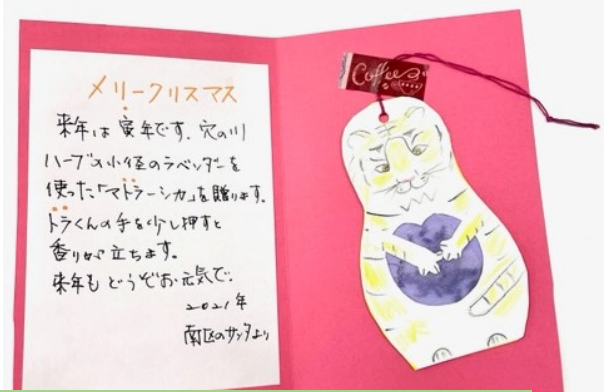 メリークリスマス
来年は寅年です。穴の川
ハーブの小径のラベンダーを
使った「マトラーシカ」を贈ります。
トラくんの手を少し押すと
香りが立ちます。
来年もどうぞお元気で。
2021年
南区のサンタより
Coffee